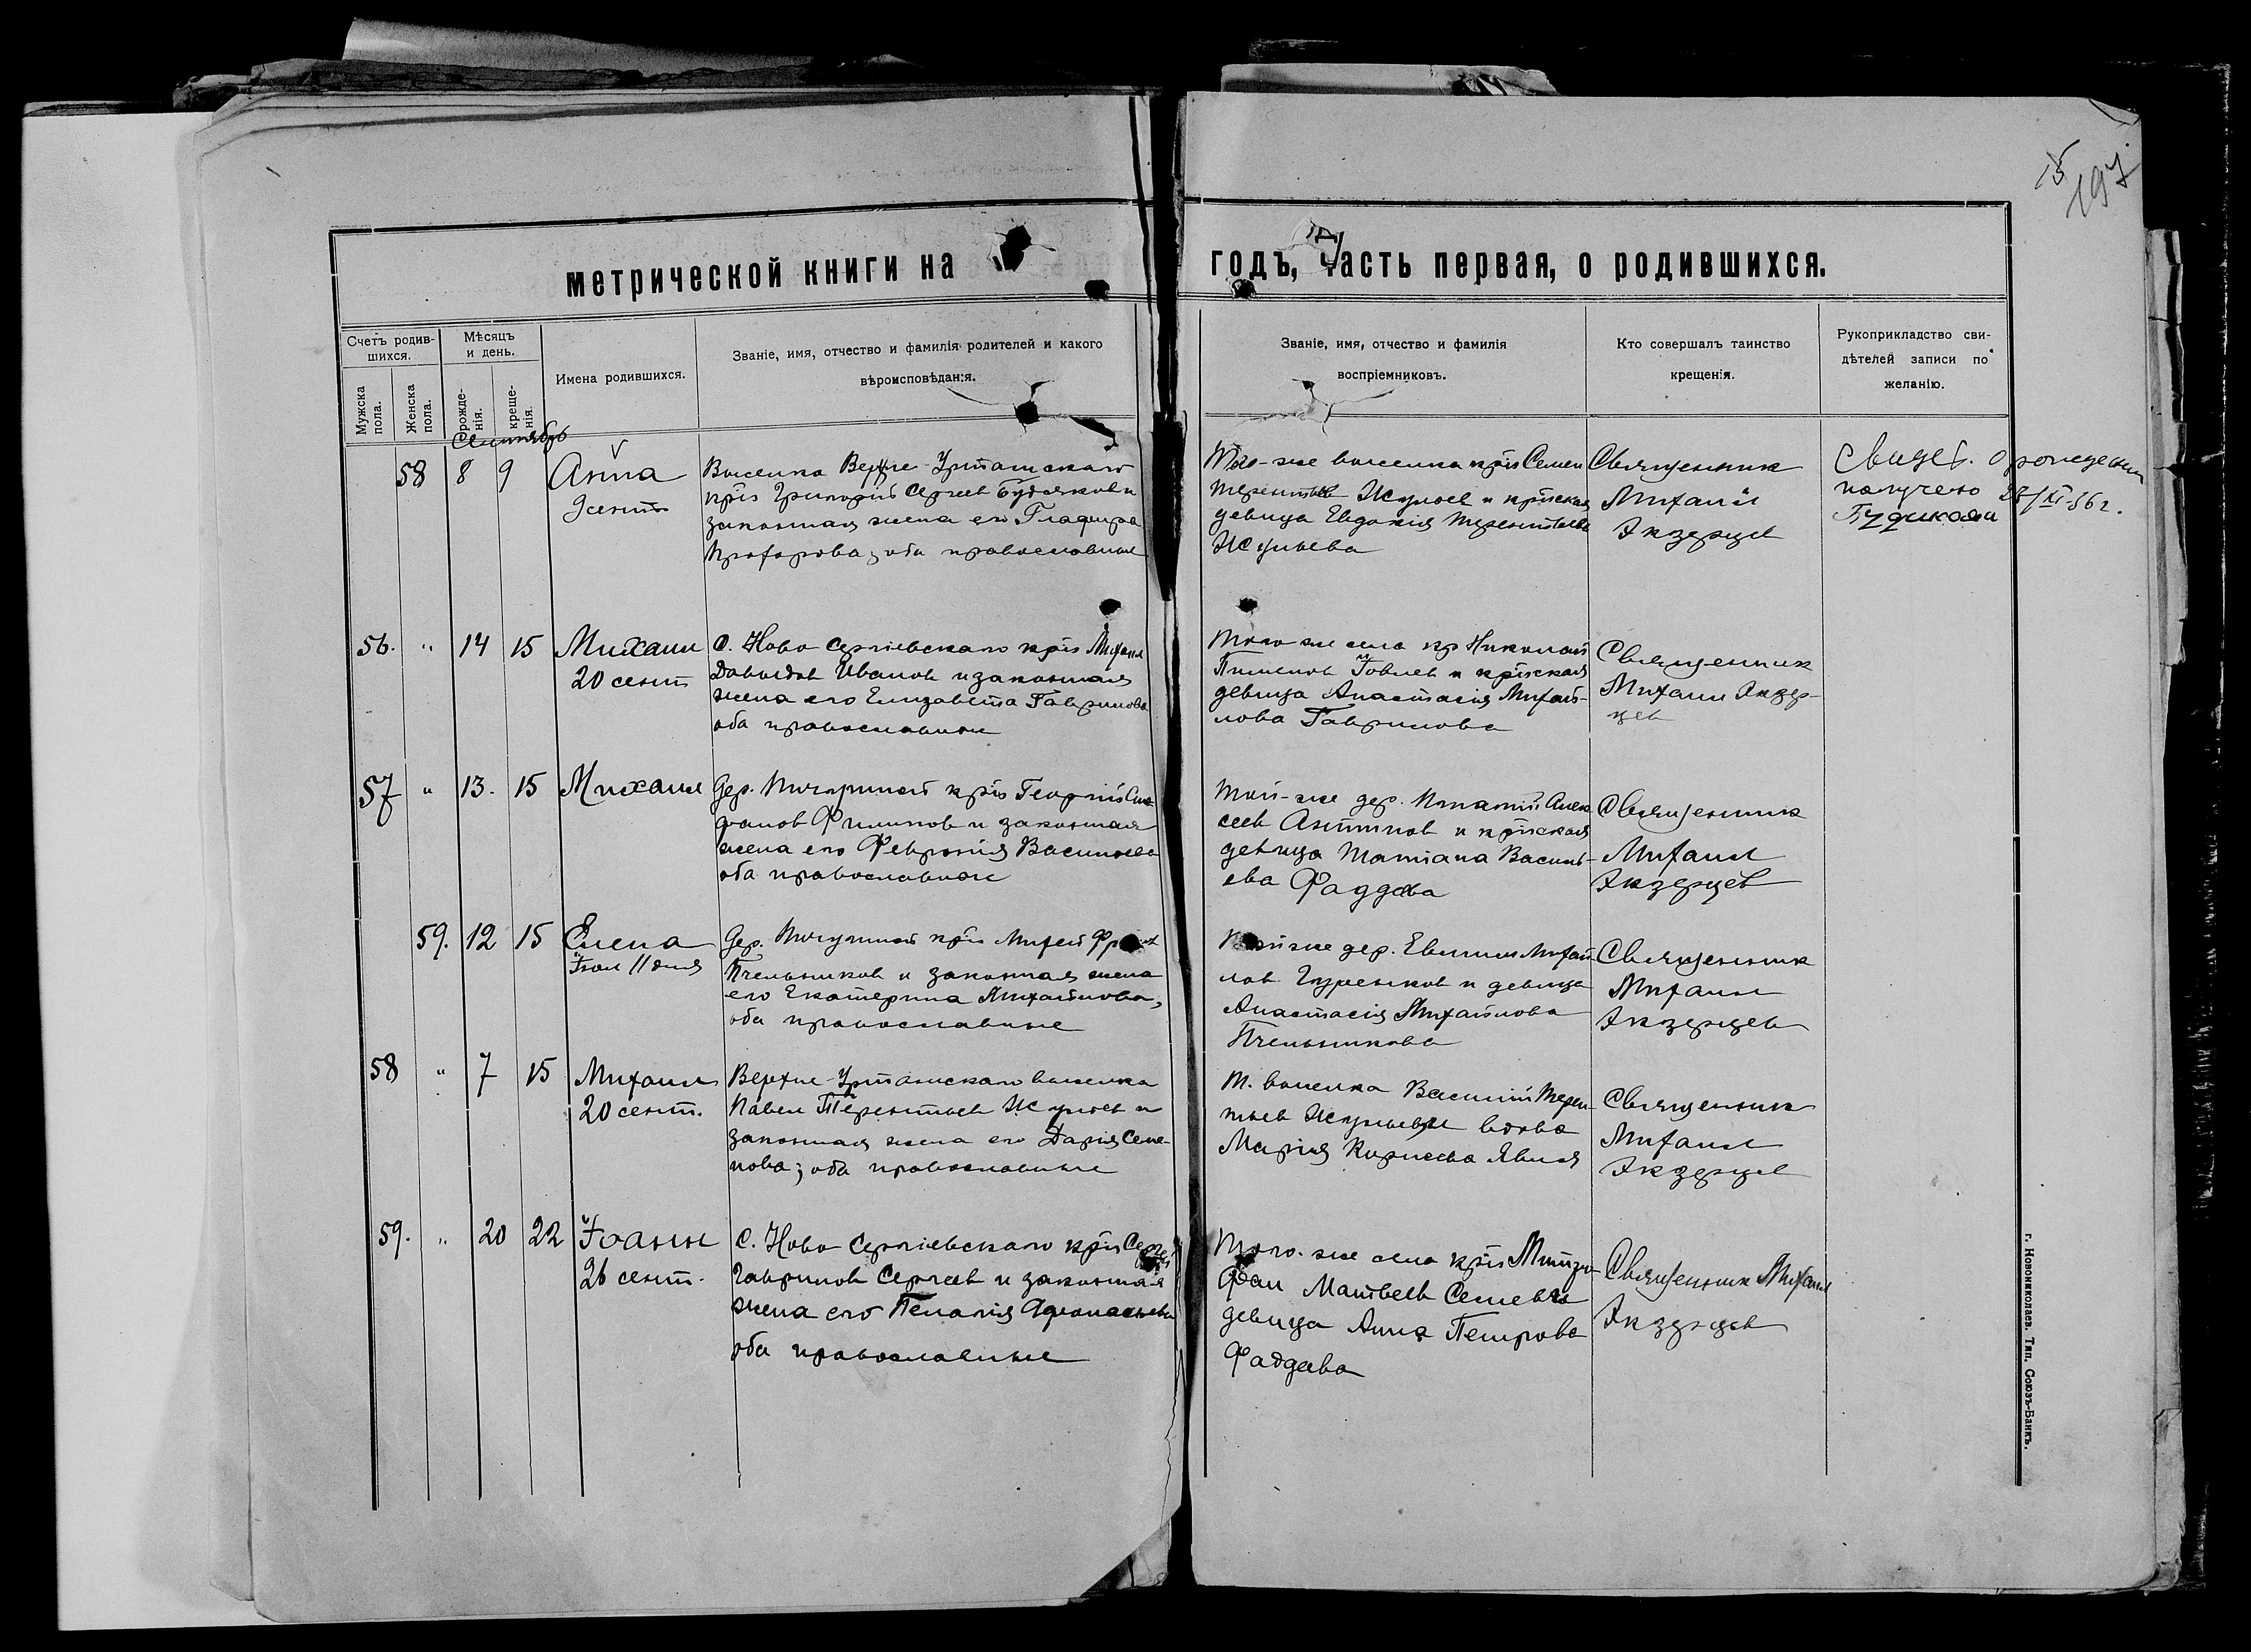 15
197
метрической книги на
годъ, часть первая, о родившихся.
Счетъ родив-
шихся.
Мѣсяцъ
и день.
Мужска
пола.
Женска
пола.
рожде-
нія.
креще-
нія.
Имена родившихся.
Званіе, имя, отчество и фамилія родителей и какого
вѣроисповѣданія.
Званіе, имя, отчество и фамилія
воспріемниковъ.
Кто совершалъ таинство
крещенія.
Рукоприкладство сви-
дѣтелей записи по
желанію.
Сентябрь
58 8 9 Анна
9 сент.
Выселка Верхне-Уртамскаго
крес Григорій Сергеев и
законная жена его Глафира
Прохорова, оба православные
Того-же выселка крес Семен
Терентьев и креская
девица Евдокія Терентьева
Священник
Михаил
Свидет. о рождении
получено 27/XI-36 г.
56. " 14 15 Михаил
20 сент
С. Ново Сергіевскаго крес Михаил
Давыдов Иванов и законная
жена его Елизавета Гаврилова
оба православные
Того же села кр Николай
Пименов и креская
девица Анастасія Михай-
лова Гаврилова
Священник
Михаил
57 " 13. 15 Михаил
Дер. крес Георгій Сте-
фанов Филипов и законная
жена его Февронія Васильева
оба православные
Той-же дер. Игнатій Алек
сеев Антипов и креская
девица Татіана Василь-
ева Фаддева
Священник
Михаил
59. 12 15 Елена
Дер. крес Михей
Пчельников и законная жена
его Екатерина Михайлова,
оба православные
Той же дер. Михай
лов и девица
Анастасія Михайлова
Пчельникова
Священник
Михаил
58 " 7 15 Михаил
20 сент.
Верхне-Уртамскаго выселка
Павел Терентьев и
законная жена его Дарія Семе-
нова; оба православные
Т. выселка Василій Терен-
тьев вдова
Марія
Священник
Михаил
59. " 20 22 Іоанн
26 сент.
С. Ново Сергіевскаго крес Сергей
Гаврилов Сергеев и законная
жена его Пелагія Афонасьева
оба православные
Того-же села крес Митро
фан Матвеев
девица Анна Петрова
Фаддева
Священник Михаил
г. Новониколаев. Тип. Союзъ-Банкъ.